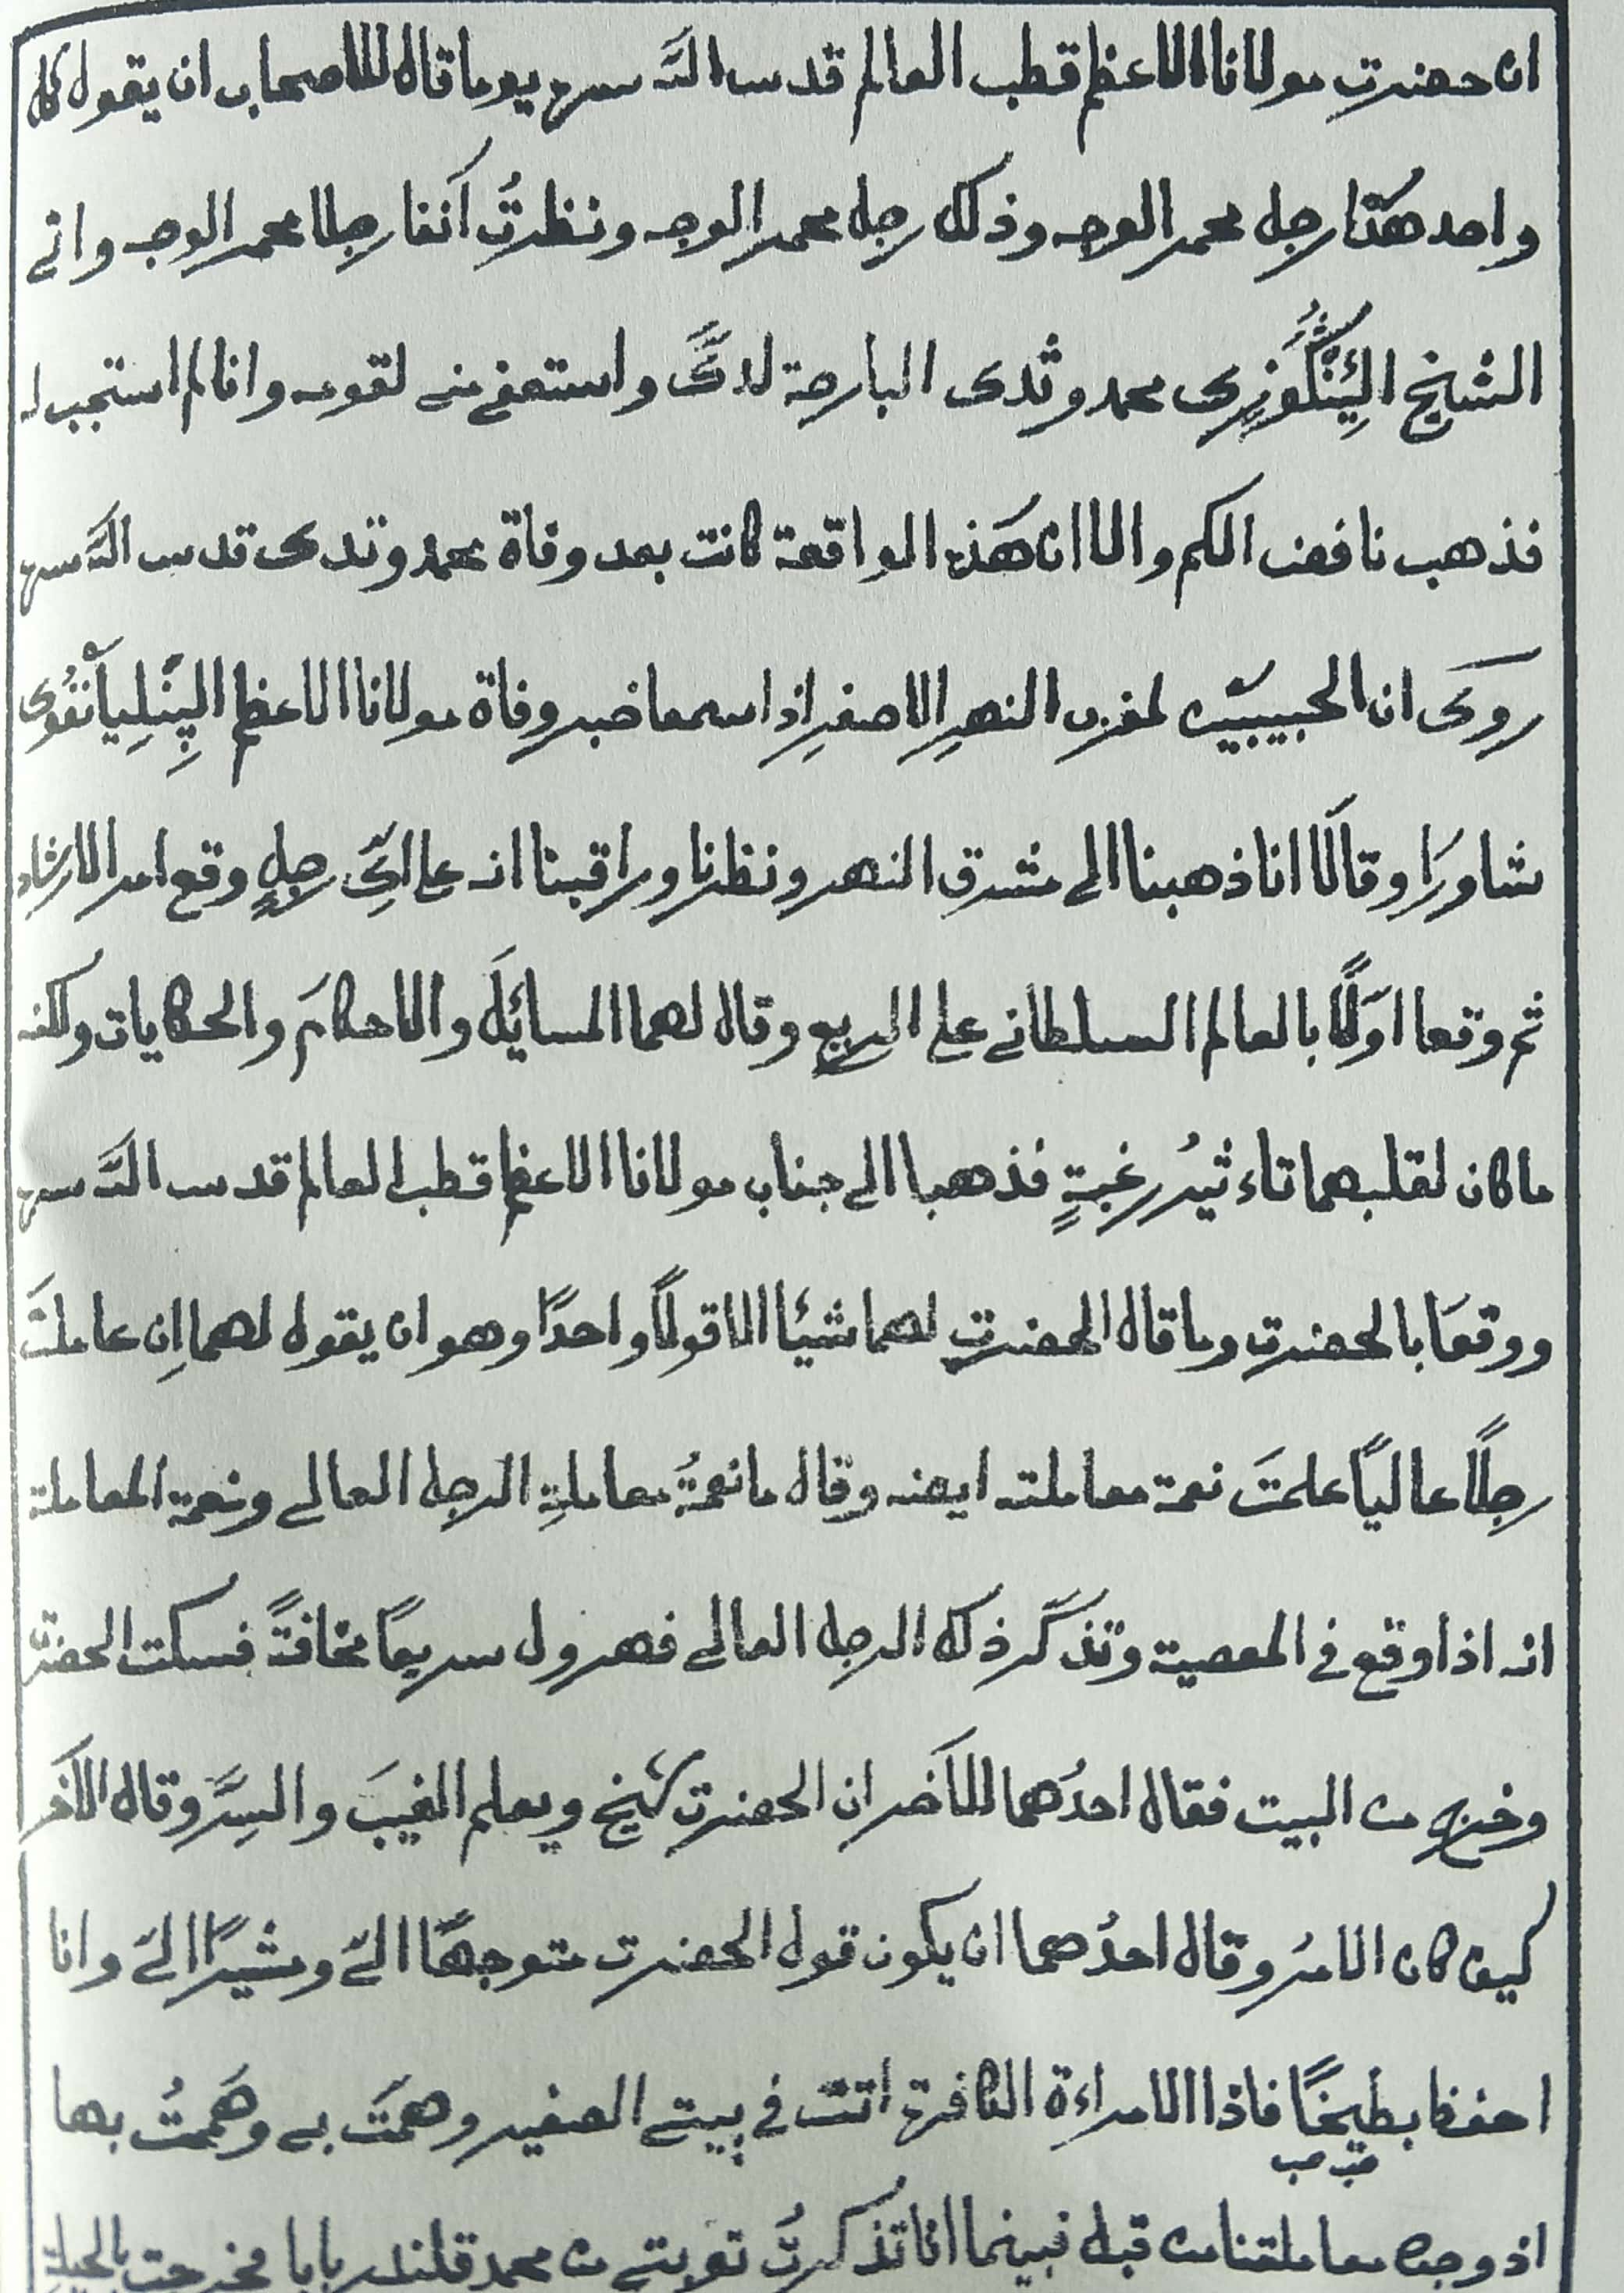 ان حضرت مولانا الاعظم قطب العالم قدس الله سره يوما قال للاصحاب ان يقول كل
واحد هٰذا رجل محمر الوجه وذلك رجل محمر الوجه ونظرتُ اَنفا رجلا محمر الوجه واتى
الشيخ محمد وتدى البارحة لدىَّ واستعفى منى لقومه وانا لم استجب له
فذهب نافض الكم والا ان هٰذه الواقعة كانت بعد وفاة محمد وتدى قدس الله سره
روىَ ان الحبيبَين لمغرب النهرِ الاصغرِ اذا سمعا خبر وفاة مولانا الاعظم
شاورَا وقالَا انا ذهبنا الى مشرق النهر ونظرنا وراقبنا انه على اىِّ رجلٍ وقع امر الارشاد
ثم وقعا اوّلًا بالعالم السلطانى على الربيع وقال لهما المسائلَ والاحكامَ والحكايات ولكنه
ما كان لقلبهما تاءثيرُ رغبةٍ فذهبا الى جناب مولانا الاعظم قطب العالم قدس الله سره
ووقعَا بالحضرت وما قال الحضرت لهما شيئا الا قولًا واحدًا وهو ان يقول لهما اِن عاملتَ
رجلًا عاليًا علمتَ نعمة معاملته ايضه وقال ما نعمةُ معاملةِ الرجل العالى ونعمة المعاملة
انه اذا وقع فى المعصية وتذكّر ذلك الرجل العالى فهرول سريعًا مخافةً فسكت الحضرت
وخرج من البيت فقال احدُهما للاَخر ان الحضرت شيخ ويعلم الغيبَ والسِرَّ وقال الاَخر
كيف كان الامرُ وقال احدُهما ان يكون قول الحضرت متوجهًا الىَّ ومشيرًا الىَّ وانا
احفظ بطيخًا فاذا الامراءة الكافرة اتت فى بيتى الصغير وهمَّت بى وهَممتُ بها
اذ وجد معاملتنا من قبل فبينما انا تذكرتُ توبتى من محمد قلندر بابا فخرجت بالحيلة